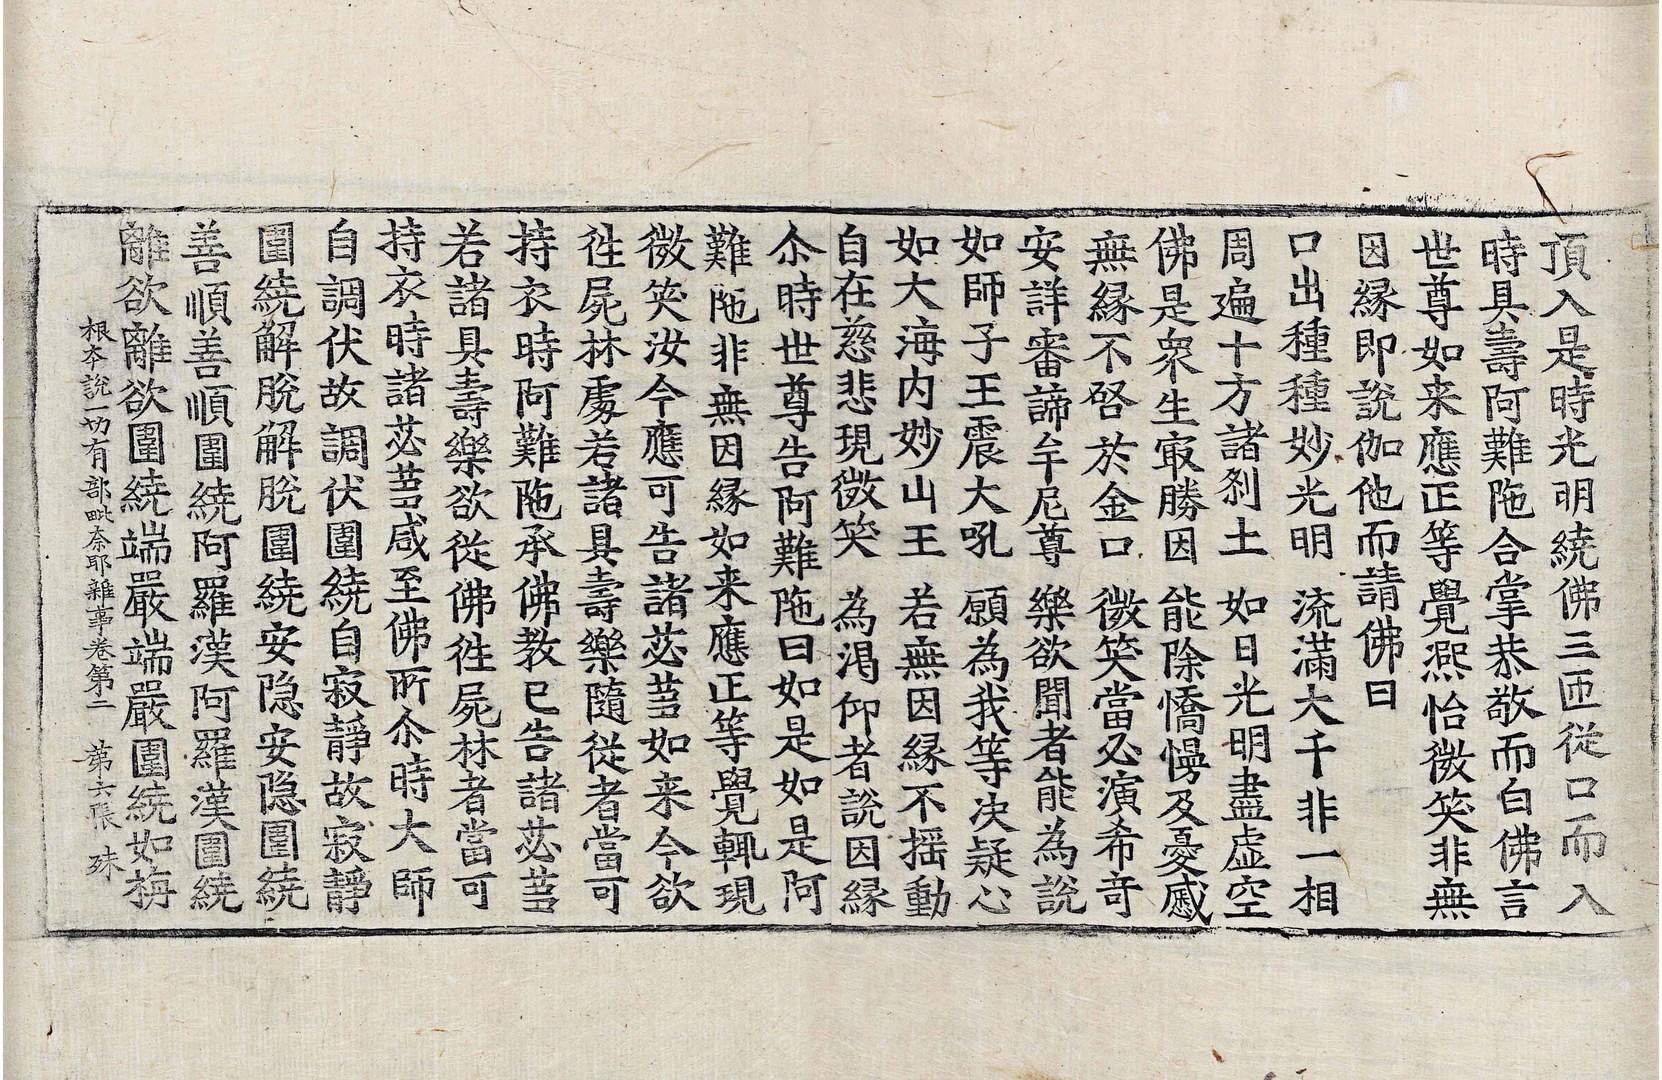 頂入是時光明繞佛三匝從口而入
時具壽阿難陁合掌恭敬而白佛言
世尊如来應正等覺熈怡微笑非無
因縁即說伽他而請佛曰
口出種種妙光明　流滿大千非一相
周遍十方諸刹土　如日光明盡虛空
佛是衆生㝡勝因　能除憍慢及憂慼
無縁不啓於金口　微笑當必演希奇
安詳審諦牟尼尊　樂欲聞者能為說
如師子王震大吼　願為我等決疑心
如大海内妙山王　若無因縁不揺動
自在慈悲現微笑　為渴仰者說因縁
尒時世尊告阿難陁曰如是如是阿
難陁非無因縁如来應正等覺輒現
微笑汝今應可告諸苾芻如来今欲
徃屍林處若諸具壽樂隨從者當可
持衣時阿難陁承佛教已告諸苾芻
若諸具壽樂欲從佛徃屍林者當可
持衣時諸苾芻咸至佛所尒時大師
自調伏故調伏圍繞自寂靜故寂靜
圍繞解脫解脫圍繞安隐安隐圍繞
善順善順圍繞阿羅漢阿羅漢圍繞
離欲離欲圍繞端嚴端嚴圍繞如栴
根本說一切有部毗奈耶雜事卷第二　第六張　殊